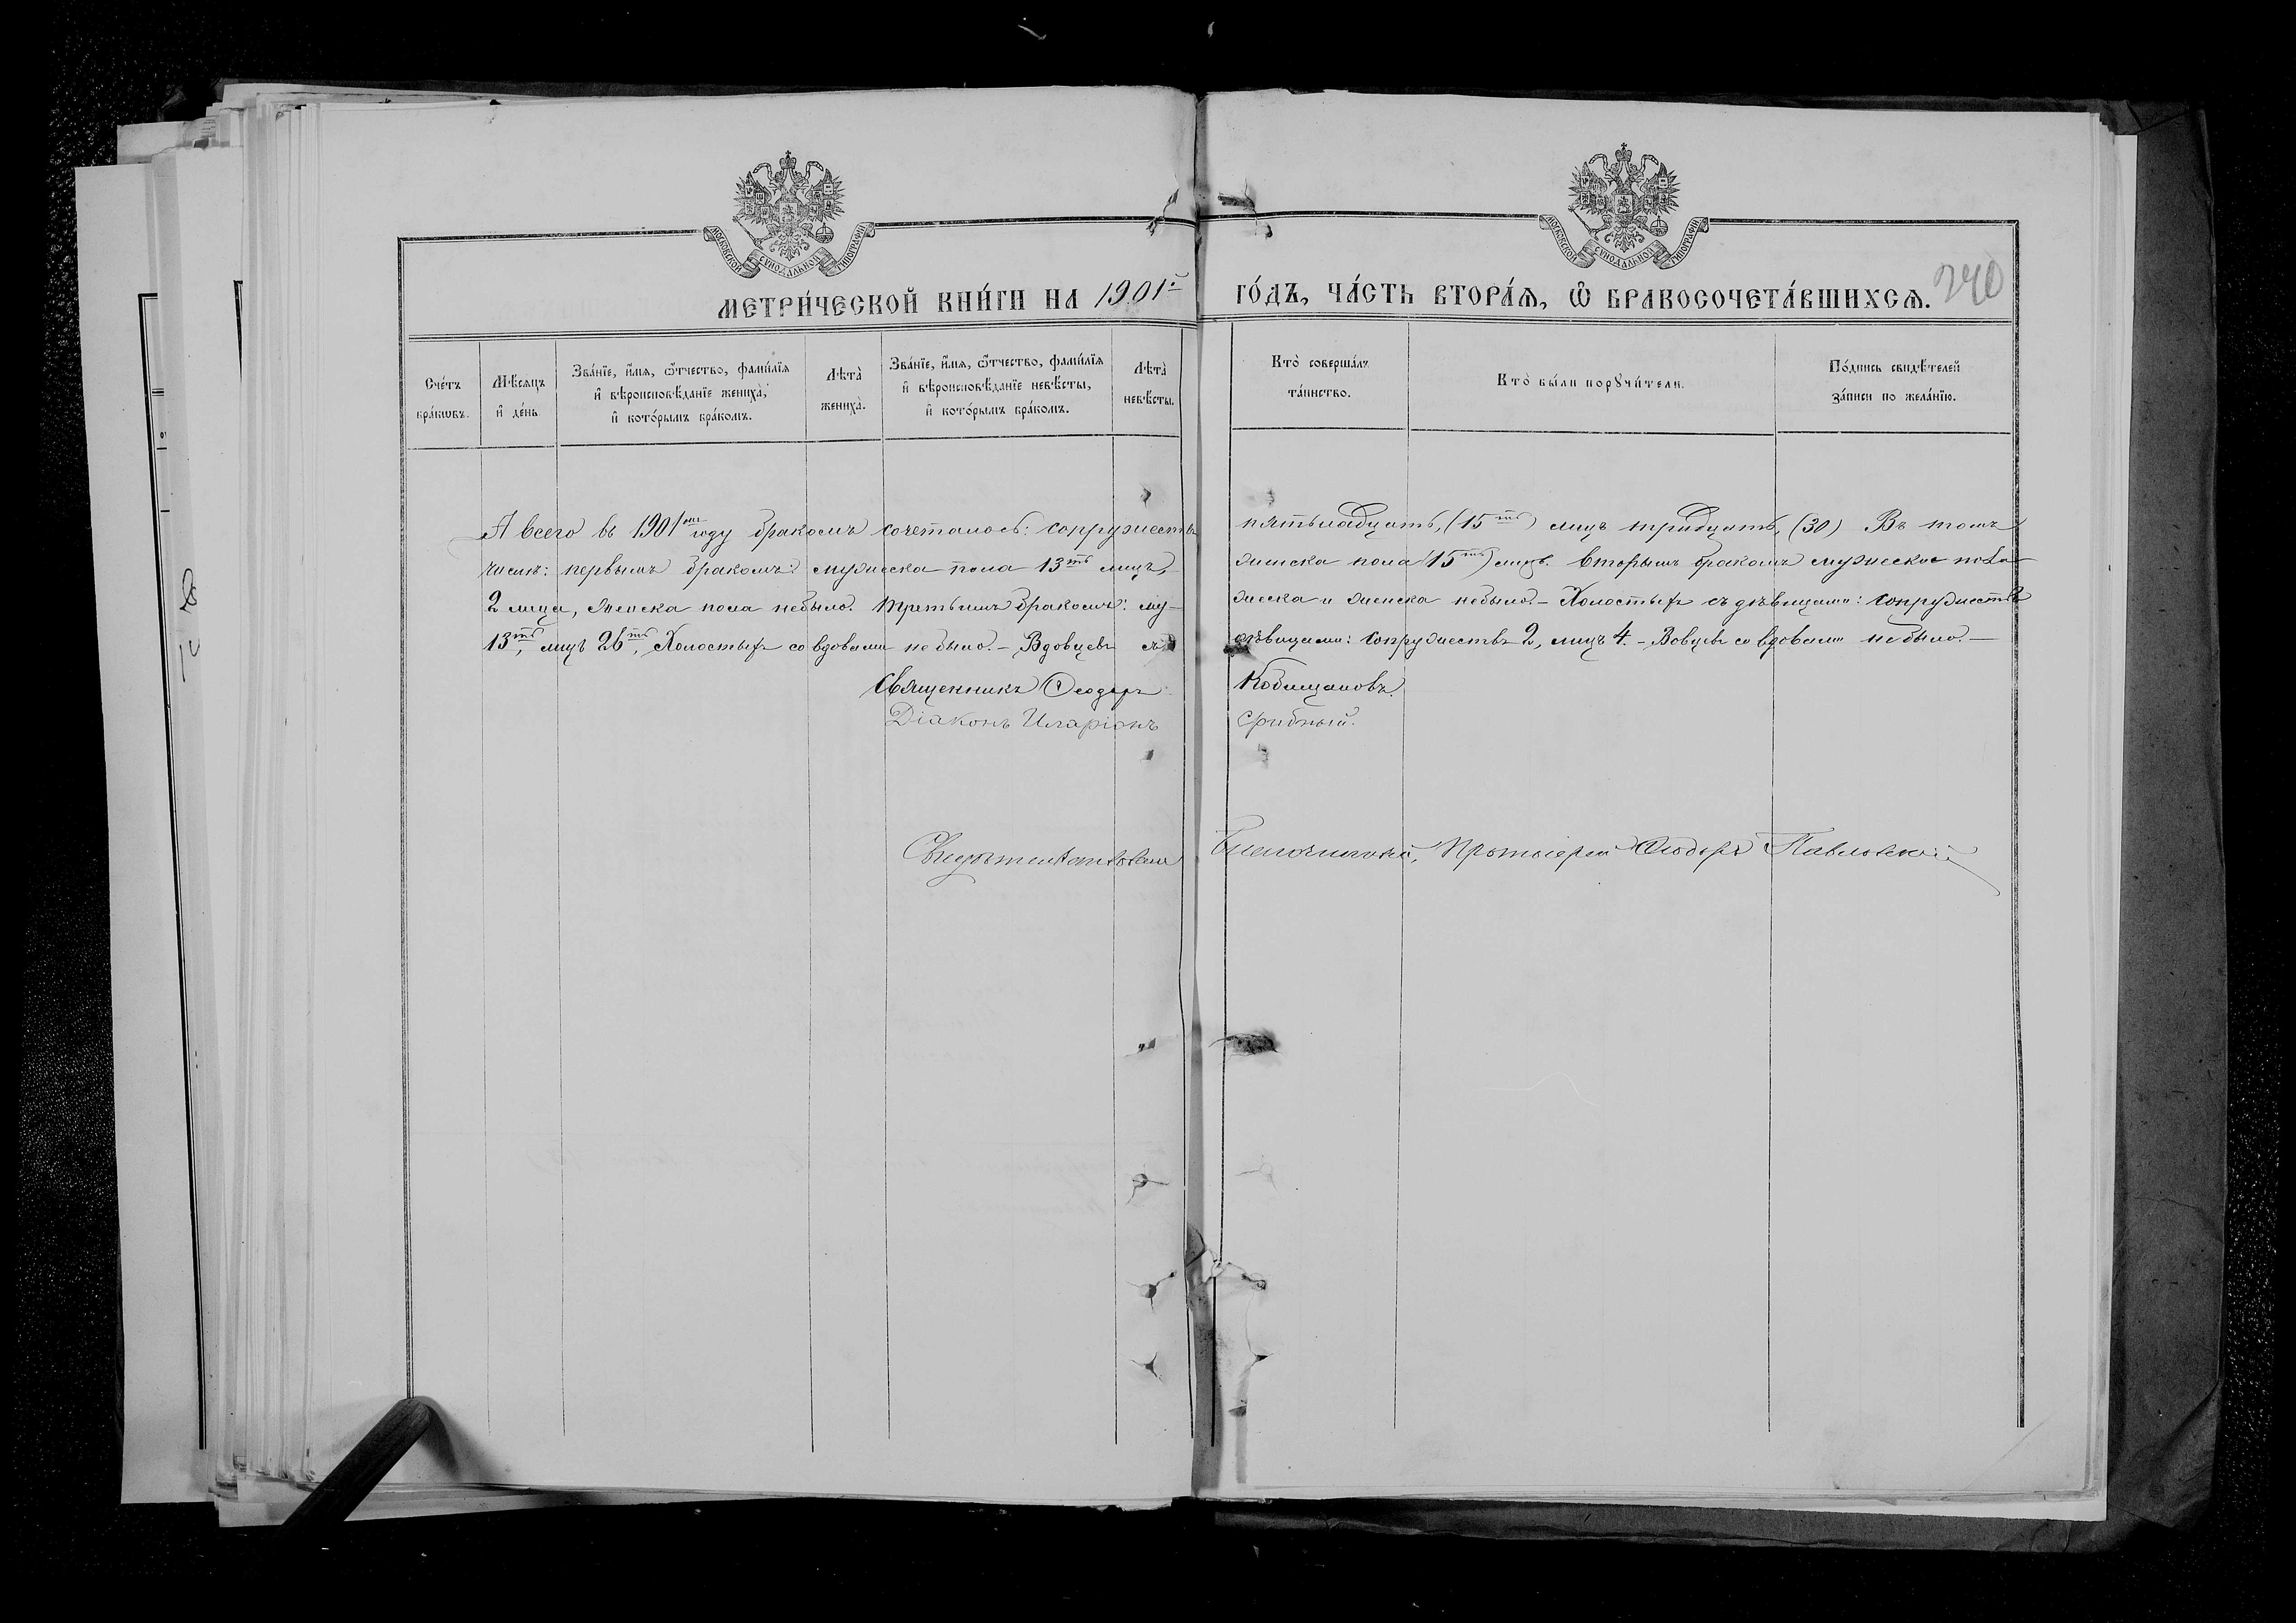 МОСКОВСКОЙ СѴНОДАЛЬНОЙ ТИПОГРАФІИ
МОСКОВСКОЙ СѴНОДАЛЬНОЙ ТИПОГРАФІИ
МЕТРИ́ЧЕСКОЙ КНИ́ГИ НА 1901й ГО́ДЪ, ЧА́СТЬ ВТОРА́Ѧ, Ѽ БРАКОСОЧЕТА́ВШИХСѦ. 240
Сче́тъ бра́кѡвъ.
Мѣ́сѧцъ и҆ де́нь
Зва́нїе, и҆́мѧ, ѻ҆́тчество, фами́лїѧ и҆ вѣроисповѣ́данїе жениха̀, и҆ кото́рымъ бра́комъ.
Лѣта̀ жениха̀.
Зва́нїе, и҆́мѧ, ѻ҆́тчество, фами́лїѧ и҆ вѣроисповѣ́данїе невѣ́сты, и҆ кото́рымъ бра́комъ.
Лѣта̀ невѣ́сты.
Кто̀ соверша́лъ та́инство.
Кто̀ бы́ли порꙋчи́тели.
По́дпись свидѣ́телей за́писи по жела́нїю.
А всего въ 1901мъ году бракомъ сочеталось: супружествъ пятьнадцать, (15ть) лицъ тридцать, (30) Въ томъ
числѣ: первымъ бракомъ: мужеска пола 13ть лицъ, женска пола (15ть) лицъ. Вторымъ бракомъ мужеска пола
2 лица, женска пола небыло. Третьимъ бракомъ: му-жеска и женска небыло. – Холостыхъ съ дѣвицами: супружествъ
13ть, лицъ 26ть, Холостыхъ со вдовами не было. – Вдовцевъ съ дѣвицами: супружествъ 2, лицъ 4. – Вовцевъ со вдовами не было. –
Священникъ Ѳеодоръ Кобищановъ.
Діаконъ Иларіонъ Срибный.
Свидѣтельствовалъ Благочинный, Протоіерей Ѳеодоръ Павловскій